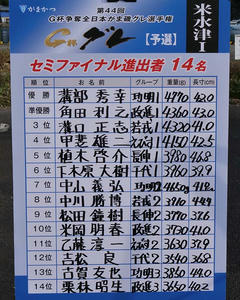 がまかつ
第44回
G杯争奪全日本がま磯グレ選手権
G杯グレ【予選】
米水津Ⅰ
セミファイナル進出者 14名
順位 お名前 グループ 重量(g) 長寸(cm)
優勝 溝部秀幸 功明1 4770 42.0
準優勝 角田利之 政進1 4360 43.0
3位 溝口正志 若戎2 4320 41.0
4位 甲斐雄二 4150 42.5
5位 植木啓介 長伸1 3980 46.8
6位 下本原大樹
7位 中山義弘 功明2
8位 中川勝博 若戎2
9位 松田鐘樹 長伸2 3770 37.6
10位 米岡朋春 政進2 3930 41.0
11位 乙藤淳一 3630 37.9
12位 吉松良 下代2 3540
13位 古賀友也 功明3 3850 44.0
14位 栗林昭生 政進3 3650 40.2